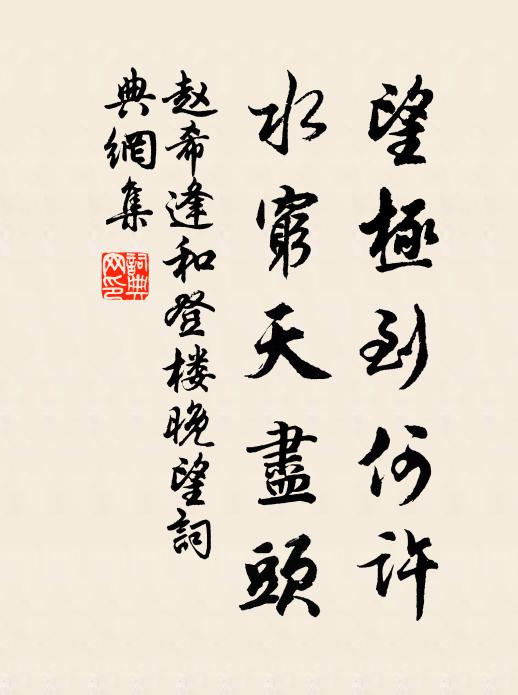 望極到何許
水窮天盡頭
赵希逢和登楼晚望詞
典網集
詞典
网印